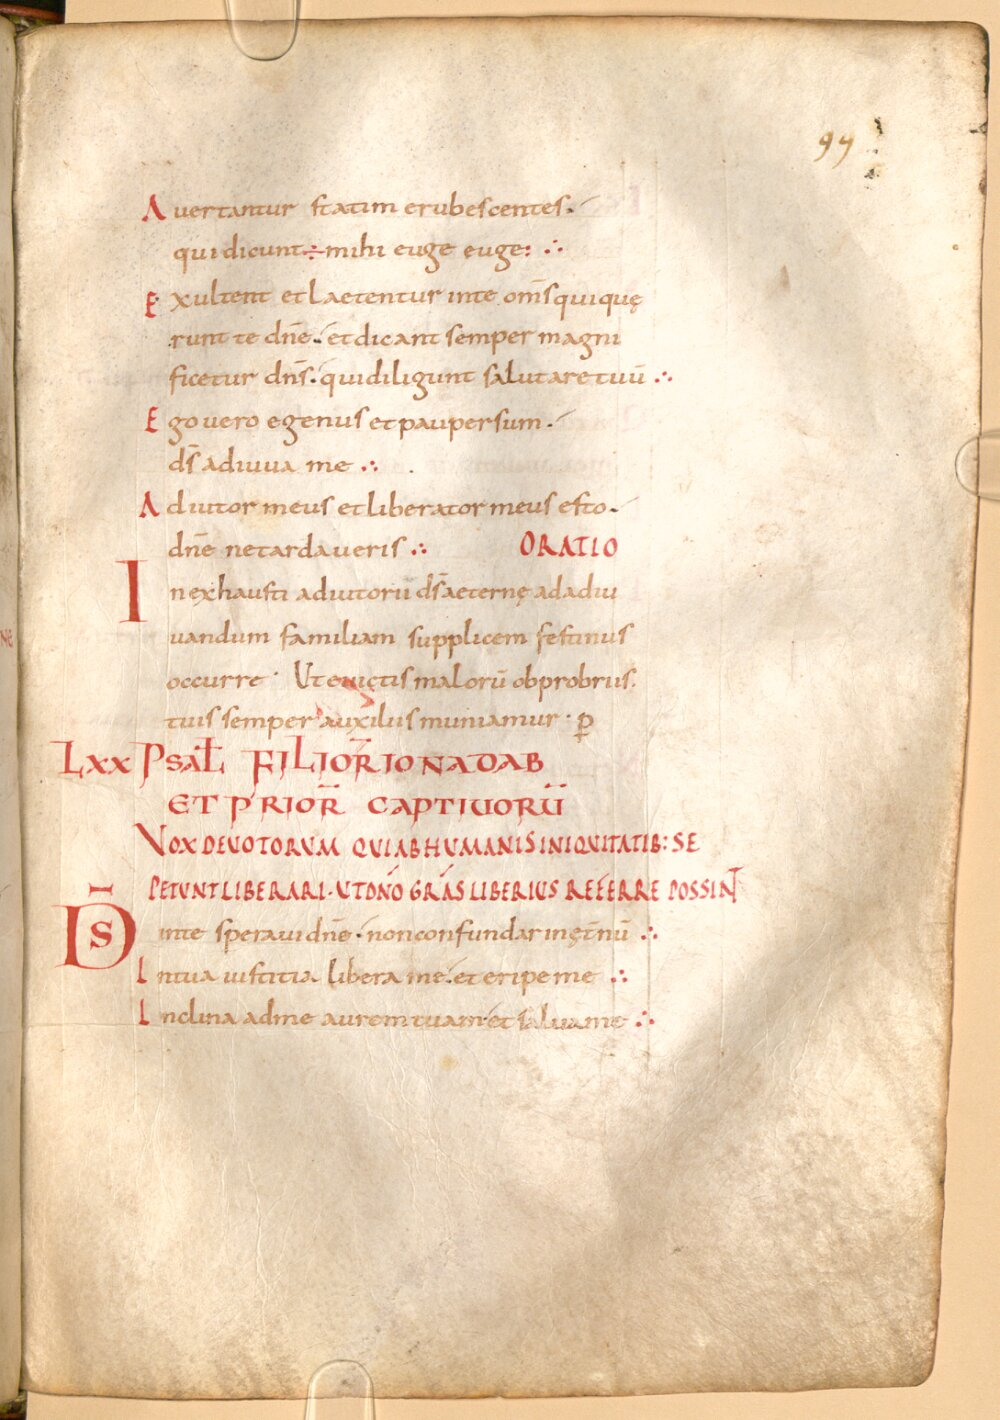 97
Auertantur statim erubescentes.
qui dicunt ÷ mihi euge euge:
Exultent et laetentur in te om̅s qui quę
runt te dn̅e. et dicant semper magni
ficetur dn̅s. qui diligunt salutare tuū
Ego uero egenus et pauper sum.
ds̅ adiuua me
Adiutor meus et liberator meus esto.
dn̅e ne tardaueris ORATIO
Inexhausti adiutorii ds̅ aeternę ad adiu
uandum familiam supplicem festinus
occurre Ut euictis malorū obprobriis.
tuis semper auxiliis muniamur· p̲
LXX Psal̅ FILIOR̅ IONADAB
ET PRIOR̅ CAPTIUORU̅
VOX DEUOTORUM QUI AB HUMANIS INIQUITATIB: SE
PETUNT LIBERARI. UT DN̅O GRA̅S LIBERIUS REFERRE POSSINT
DS̅ in te speraui dn̅e. non confundar in ęt̅nū
In tua iustitia libera me. et eripe me
Inclina ad me aurem tuam. et salua me